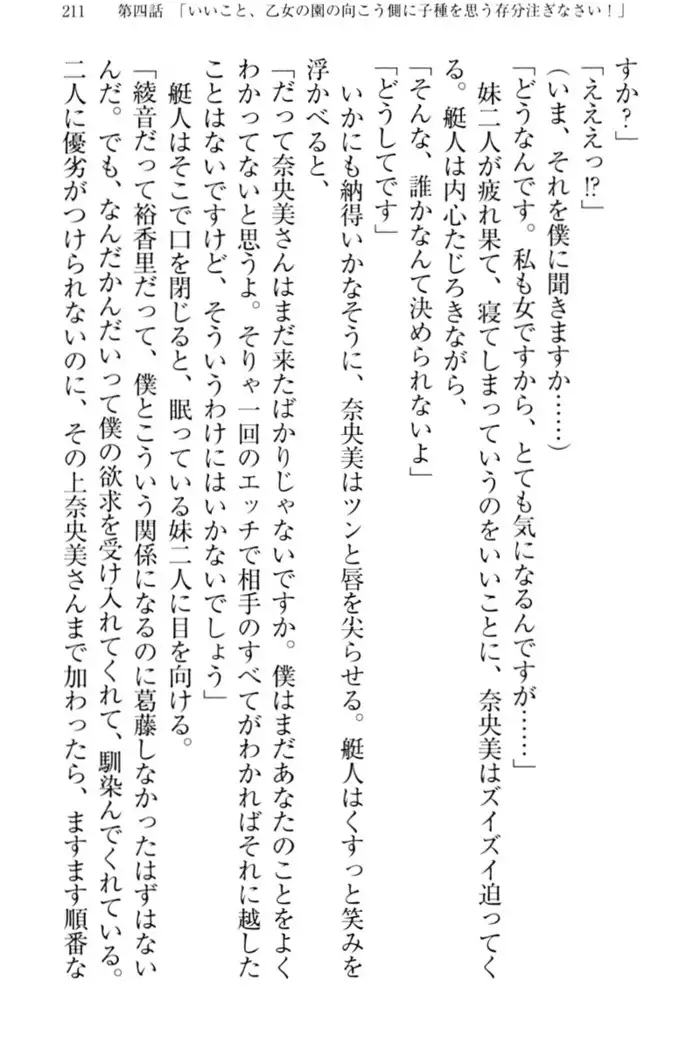 211　第四話　「いいこと、乙女の園の向こう側に子種を思う存分注ぎなさい！」
すか？」
「えええっ!?」
（いま、それを僕に聞きますか……）
「どうなんです。私も女ですから、とても気になるんですが……」
妹二人が疲れ果て、寝てしまっていうのをいいことに、奈央美はズイズイ迫ってく
る。艇人は内心たじろきながら、
「そんな、誰かなんて決められないよ」
「どうしてです」
いかにも納得いかなそうに、奈央美はツンと唇を尖らせる。艇人はくすっと笑みを
浮かべると、
「だって奈央美さんはまだ来たばかりじゃないですか。僕はまだあなたのことをよく
わかってないと思うよ。そりゃ一回のエッチで相手のすべてがわかればそれに越した
ことはないですけど、そういうわけにはいかないでしょう」
艇人はそこで口を閉じると、眠っている妹二人に目を向ける。
「綾音だって裕香里だって、僕とこういう関係になるのに葛藤しなかったはずはない
んだ。でも、なんだかんだいって僕の欲求を受け入れてくれて、馴染んでくれている。
二人に優劣がつけられないのに、その上奈央美さんまで加わったら、ますます順番な